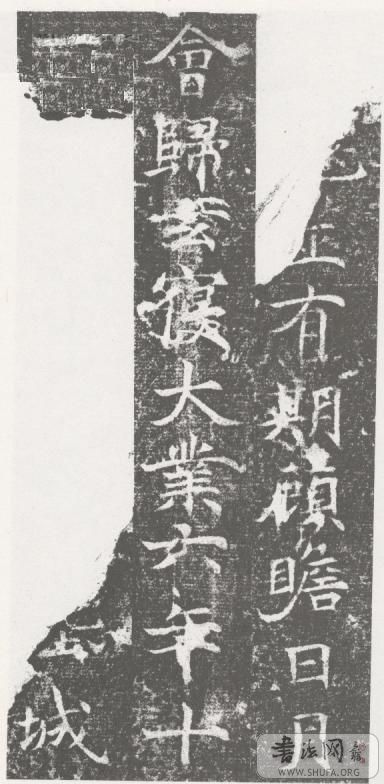 正有期顧瞻日月
會歸玄寢大業六年十
城
書法网
WWW.SHUFA.ORG